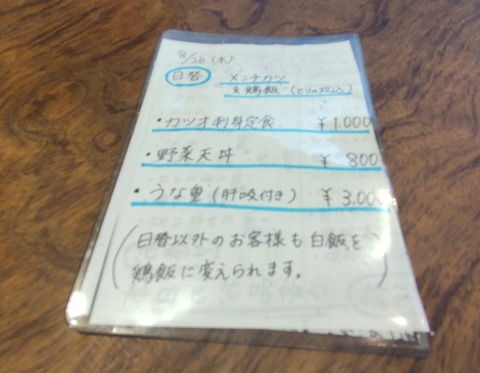 8/26 (木)
日替 メンチカツ
&鶏飯 (とりの炊込)
・カツオ刺身定食 ¥1.000
・野菜天丼 ¥800
・うな重(肝吸付き) ¥3.000
(日替以外のお客様も白飯を
鶏飯に変えられます。)